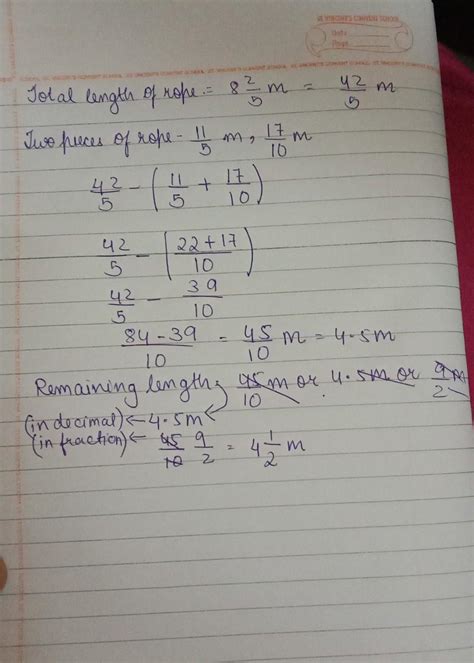 Total length of rope = 8 2/5 m = 42/5 m
Two pieces of rope - 11/5 m, 17/10 m
42/5 - (11/5 + 17/10)
42/5 - (22+17/10)
42/5 - 39/10
84-39/10 = 45/10 m = 4.5m
Remaining length 45/10 m or 4.5m or 9/2 m
(in decimal) ← 4.5m
(in fraction) ← 45/10 9/2 = 4 1/2 m